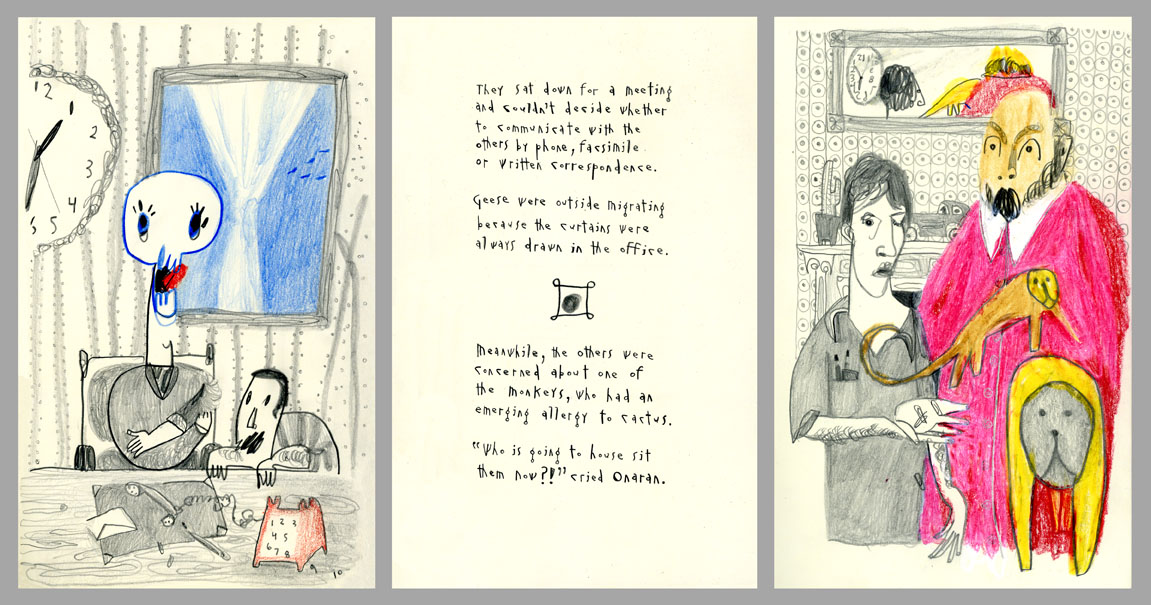 12
1
2
3
4
5
5
1 2 3
4 5
6 7 8
9 10
They sat down for a meeting
and couldn't decide whether
to communicate with the
others by phone, facsimile
or written correspondence.
Geese were outside migrating
because the curtains were
always drawn in the office.
Meanwhile, the others were
concerned about one of
the monkeys, who had an
emerging allergy to cactus.
"Who is going to house sit
them now?!" cried Onaran.